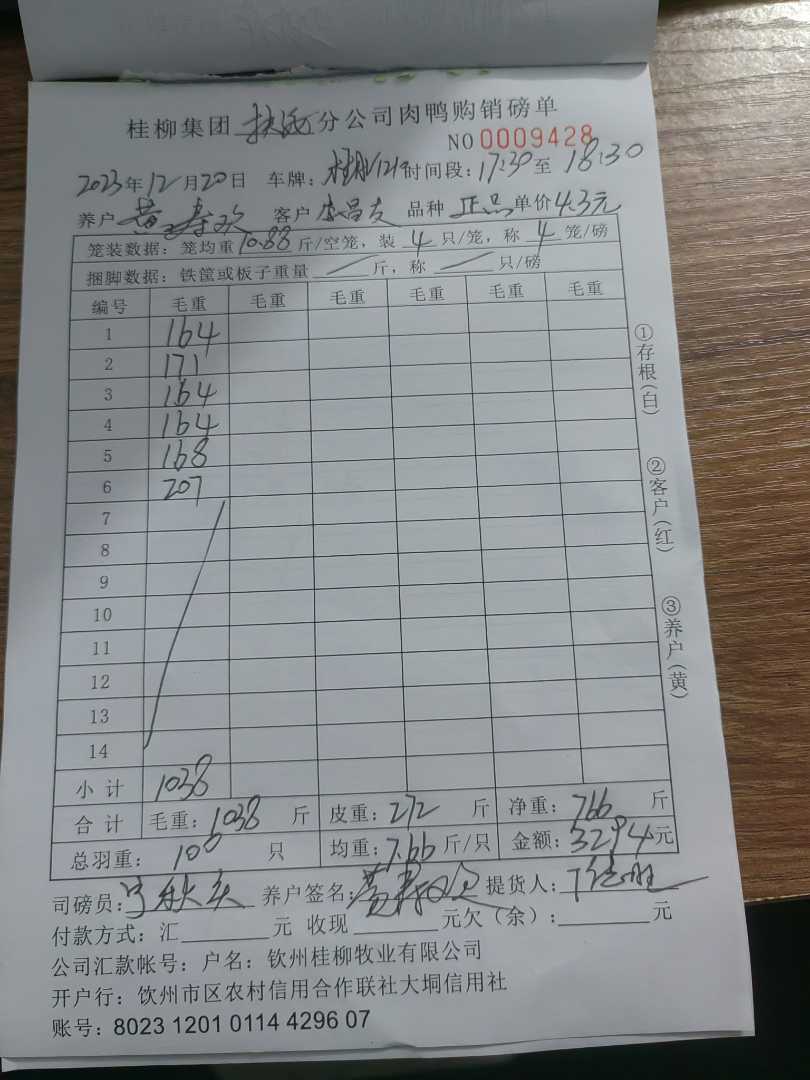 桂柳集团 分公司肉鸭购销磅单
NO 0009428
2023年12月20日 车牌: 时间段:17:30至18:30
养户 黄寿欢 客户 李昌友 品种 正品 单价4.3元
笼装数据:笼均重10.88斤/空笼,装 4 只/笼,称 4 笼/磅
捆脚数据:铁筐或板子重量 / 斤,称 / 只/磅
编号 毛重 毛重 毛重 毛重 毛重 毛重
1 164
2 171
3 164
4 164
5 168
6 207
7
8
9
10
11
12
13
14
小计 1038
合计 毛重:1038 斤 皮重:272 斤 净重:766 斤
总羽重:100 只 均重:7.66 斤/只 金额:3294元
司磅员: 养户签名: 提货人:
付款方式:汇 元 收现 元欠(余): 元
公司汇款帐号:户名:钦州桂柳牧业有限公司
开户行:饮州市区农村信用合作联社大垌信用社
账号:8023 1201 0114 4296 07
①存根(白)
②客户(红)
③养户(黄)